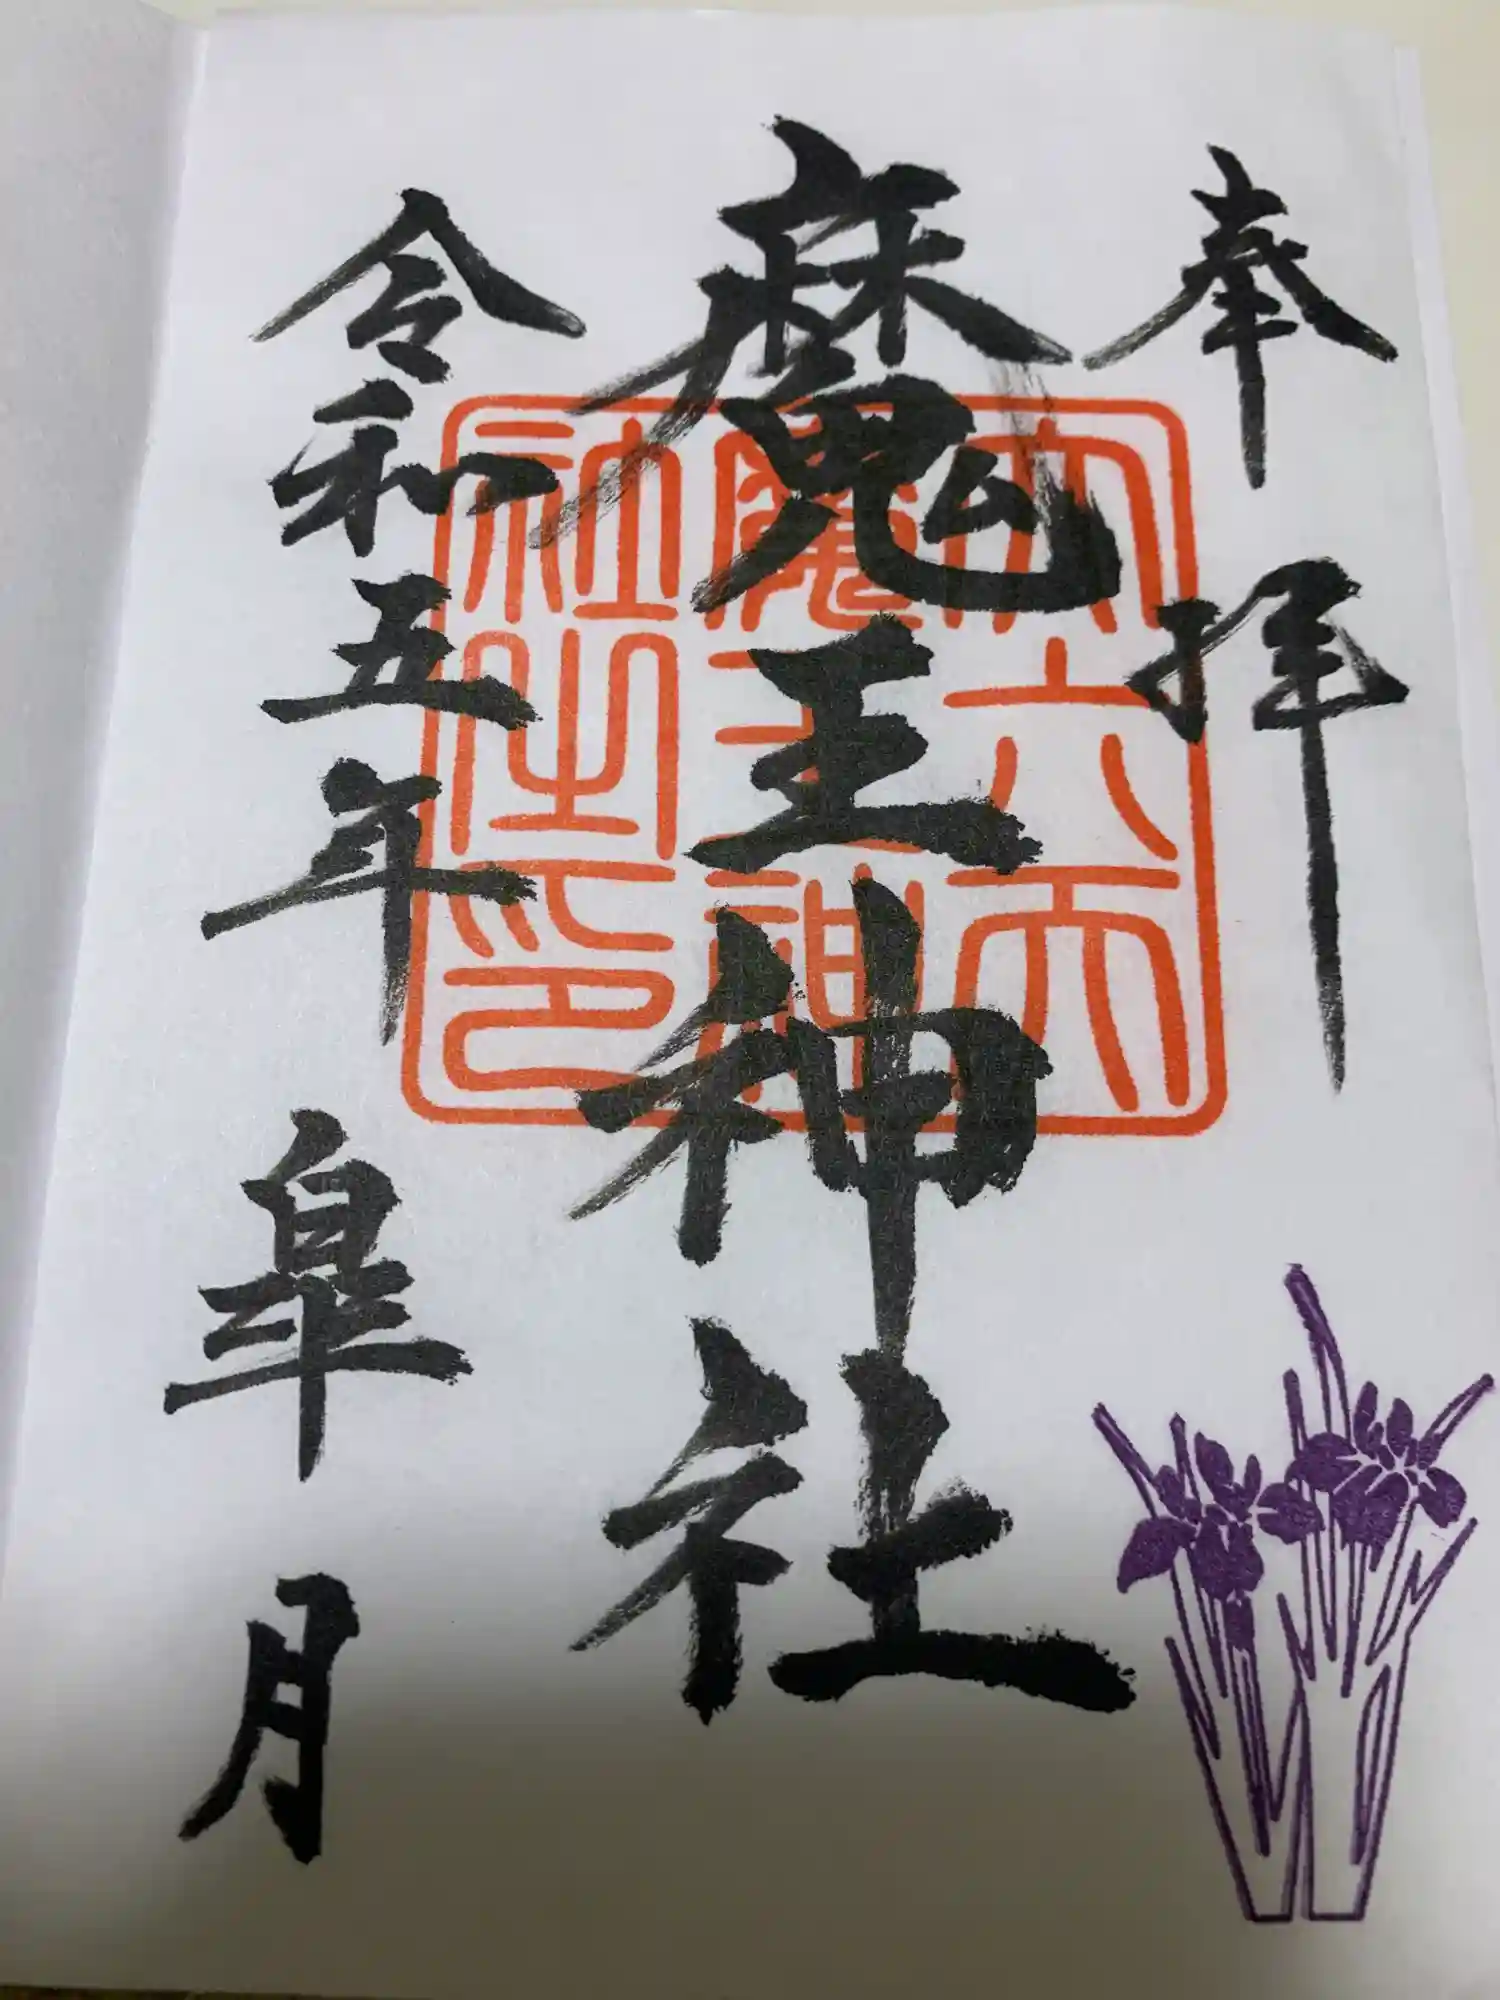 奉拝
魔王神社
令和五年 皐月
第六天
魔王神
社之印